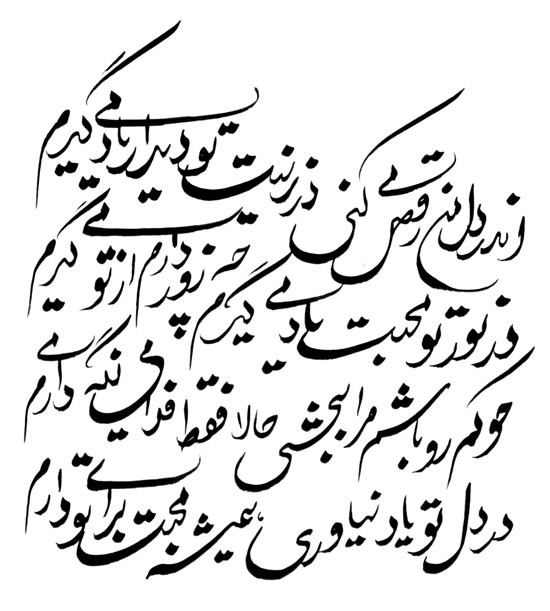 اندر دل من رقص می کنی در زینت تو دیدار یاد می گیرم
در نور تو محبت یاد می گیرم چه زور دارم از تو می گیرم
چو کم رو باشم مرا ببخشی حالا فقط فدا می نگه دارم
در دل تو یاد نیاوری همیشه محبت برای تو دارم